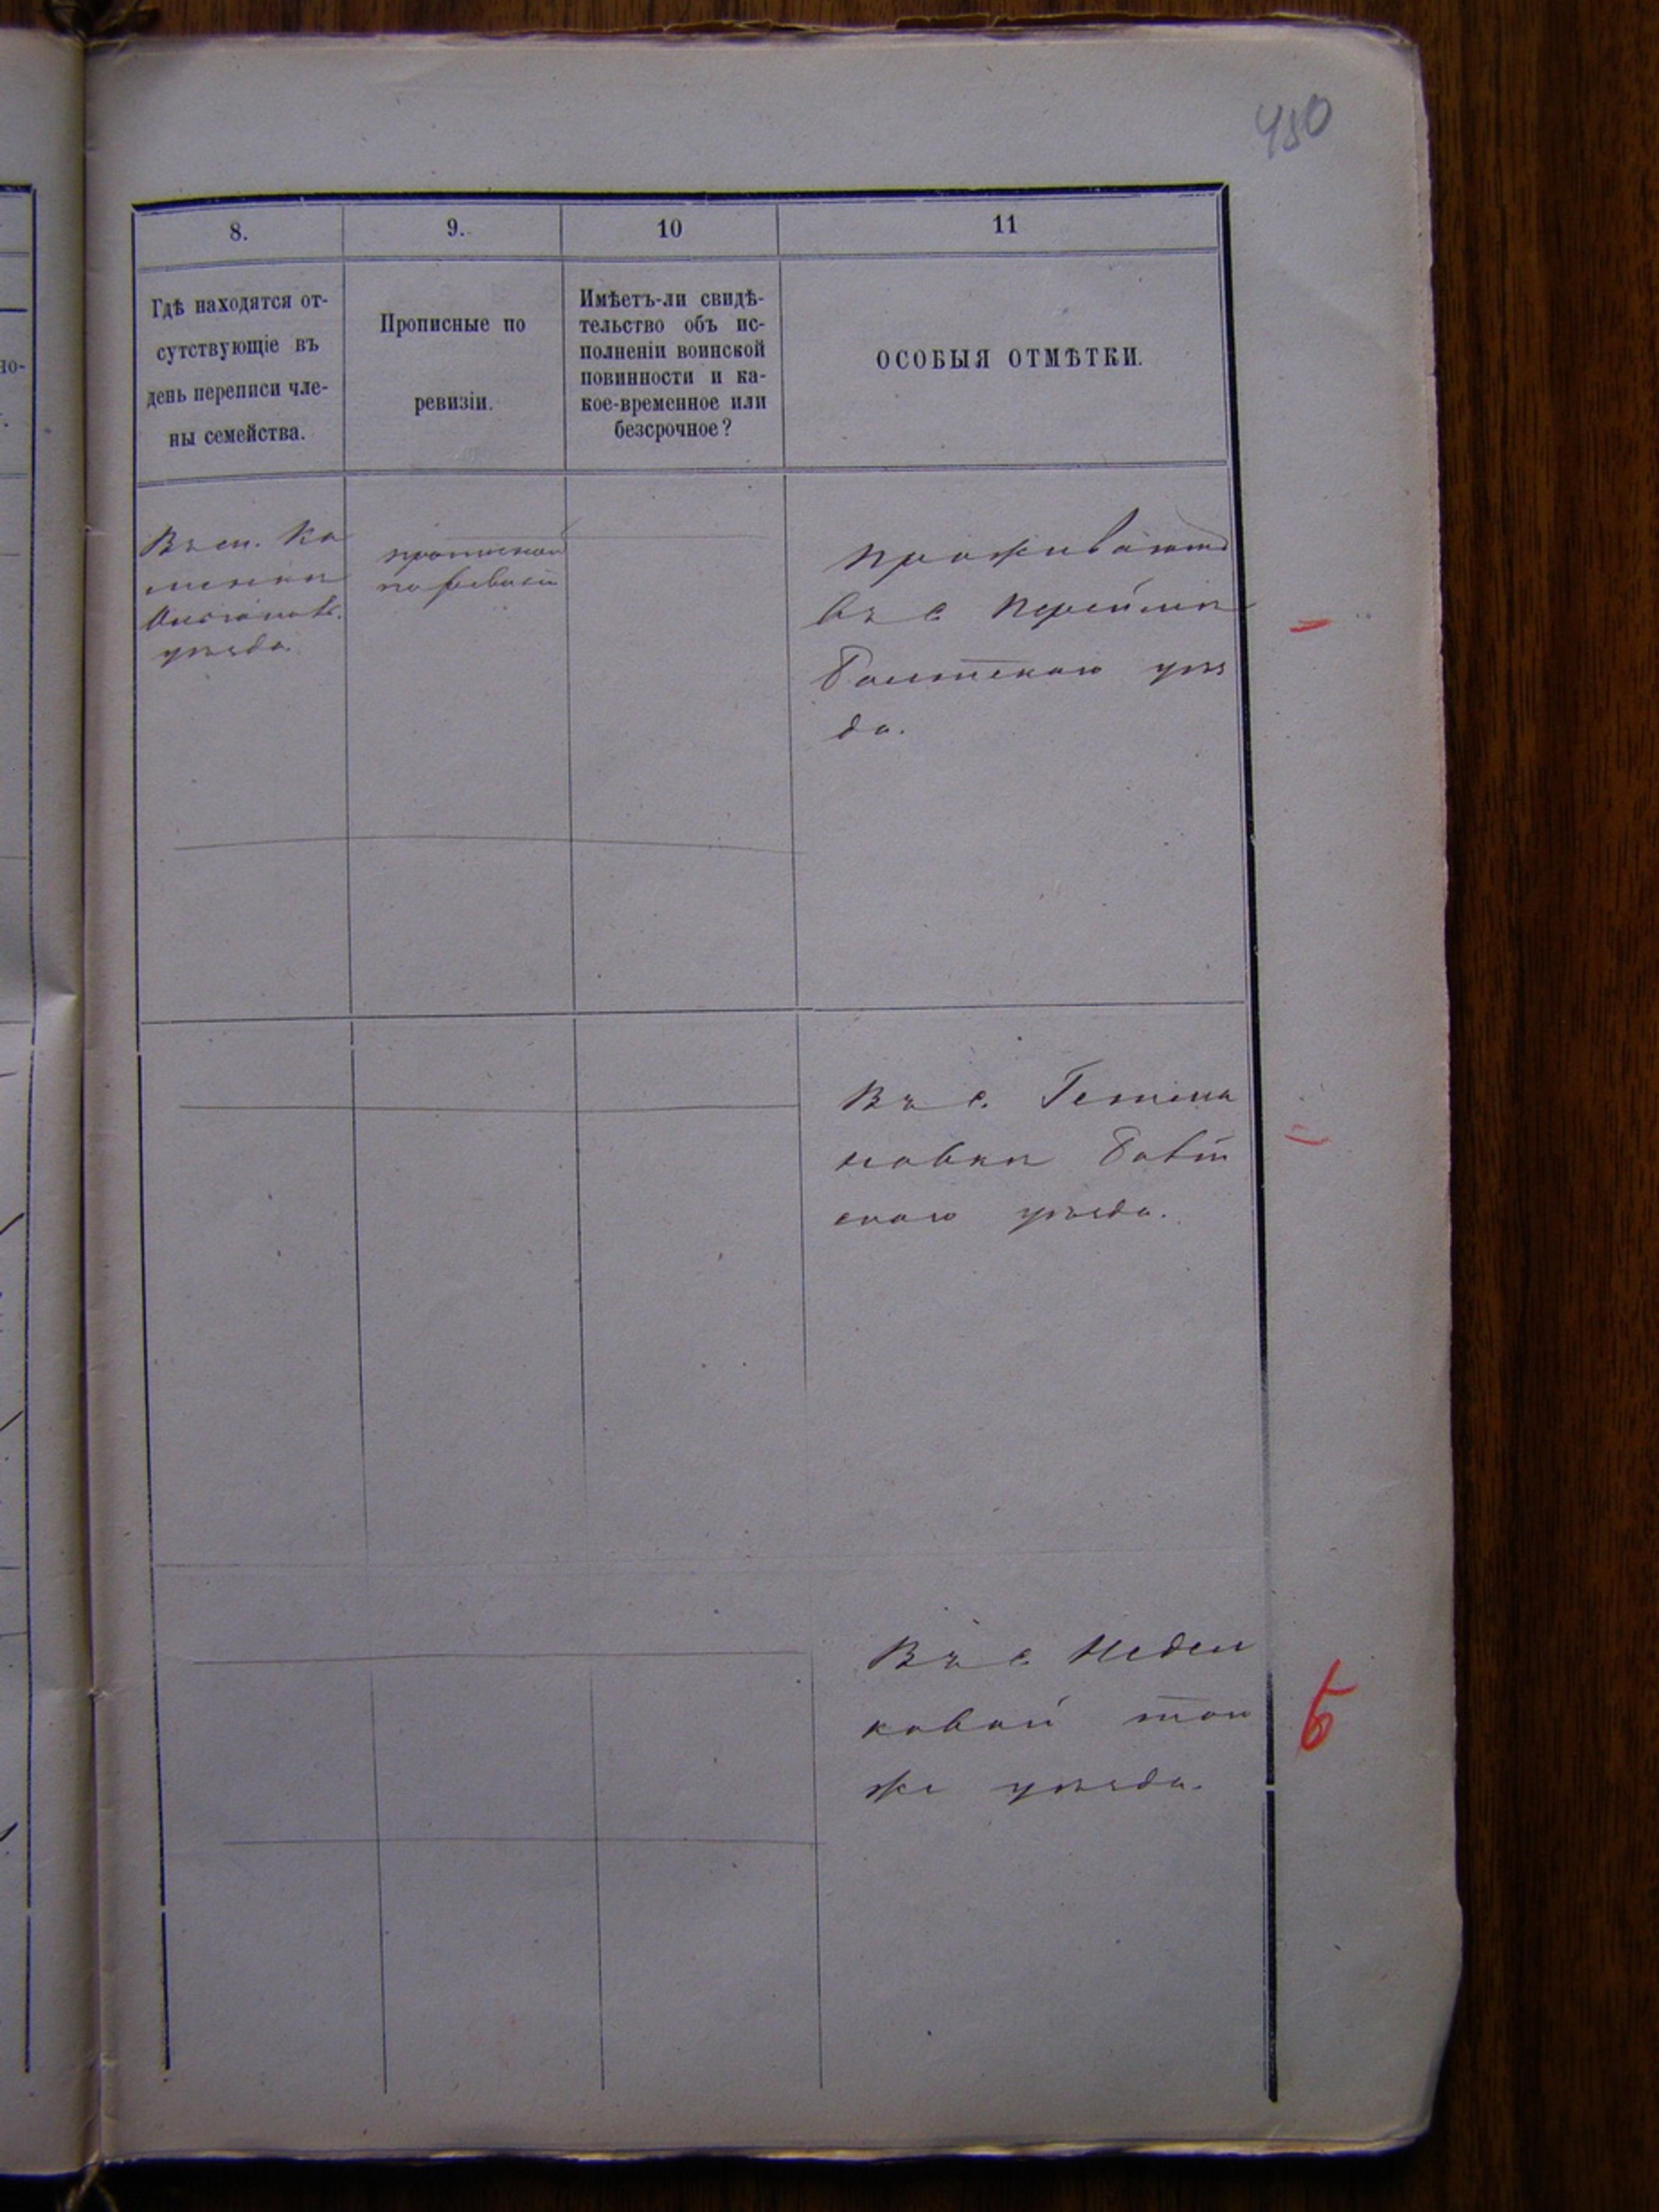 450
8.
9.
10
11
Гдѣ находятся от-
сутствующіе въ
день переписи чле-
ны семейства.
Прописные по
ревизіи.
Имѣетъ-ли свидѣ-
тельство объ ис-
полненіи воинской
повинности и ка-
кое-временное или
безсрочное?
ОСОБЫЯ ОТМѢТКИ.
Въ ст. Ка
менки
уѣзда.
по ревизіи
Проживаютъ
въ с.
Балтскаго уѣз
да.
Въ с.
новки Балт
скаго уѣзда.
Въ с. Недел
ковой того
же уѣзда.